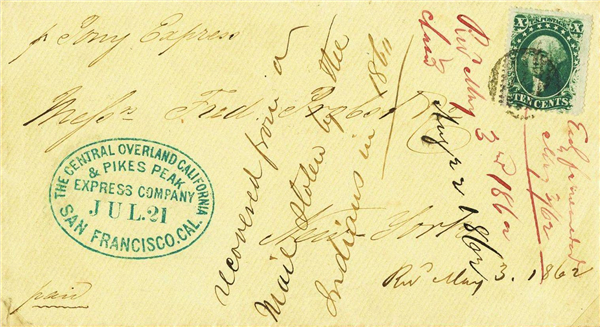 p Pony Express
Messrs Fred Probst & Co
New York
paid
THE CENTRAL OVERLAND CALIFORNIA
& PIKES PEAK
EXPRESS COMPANY
JUL. 21
SAN FRANCISCO. CAL.
recovered from a
Mail stolen by the
Indians in 1860
Recd May
3rd 1862
Aug 22 1862
Recd May 3. 1862
May 3/62
X U.S. POSTAGE X
TEN CENTS